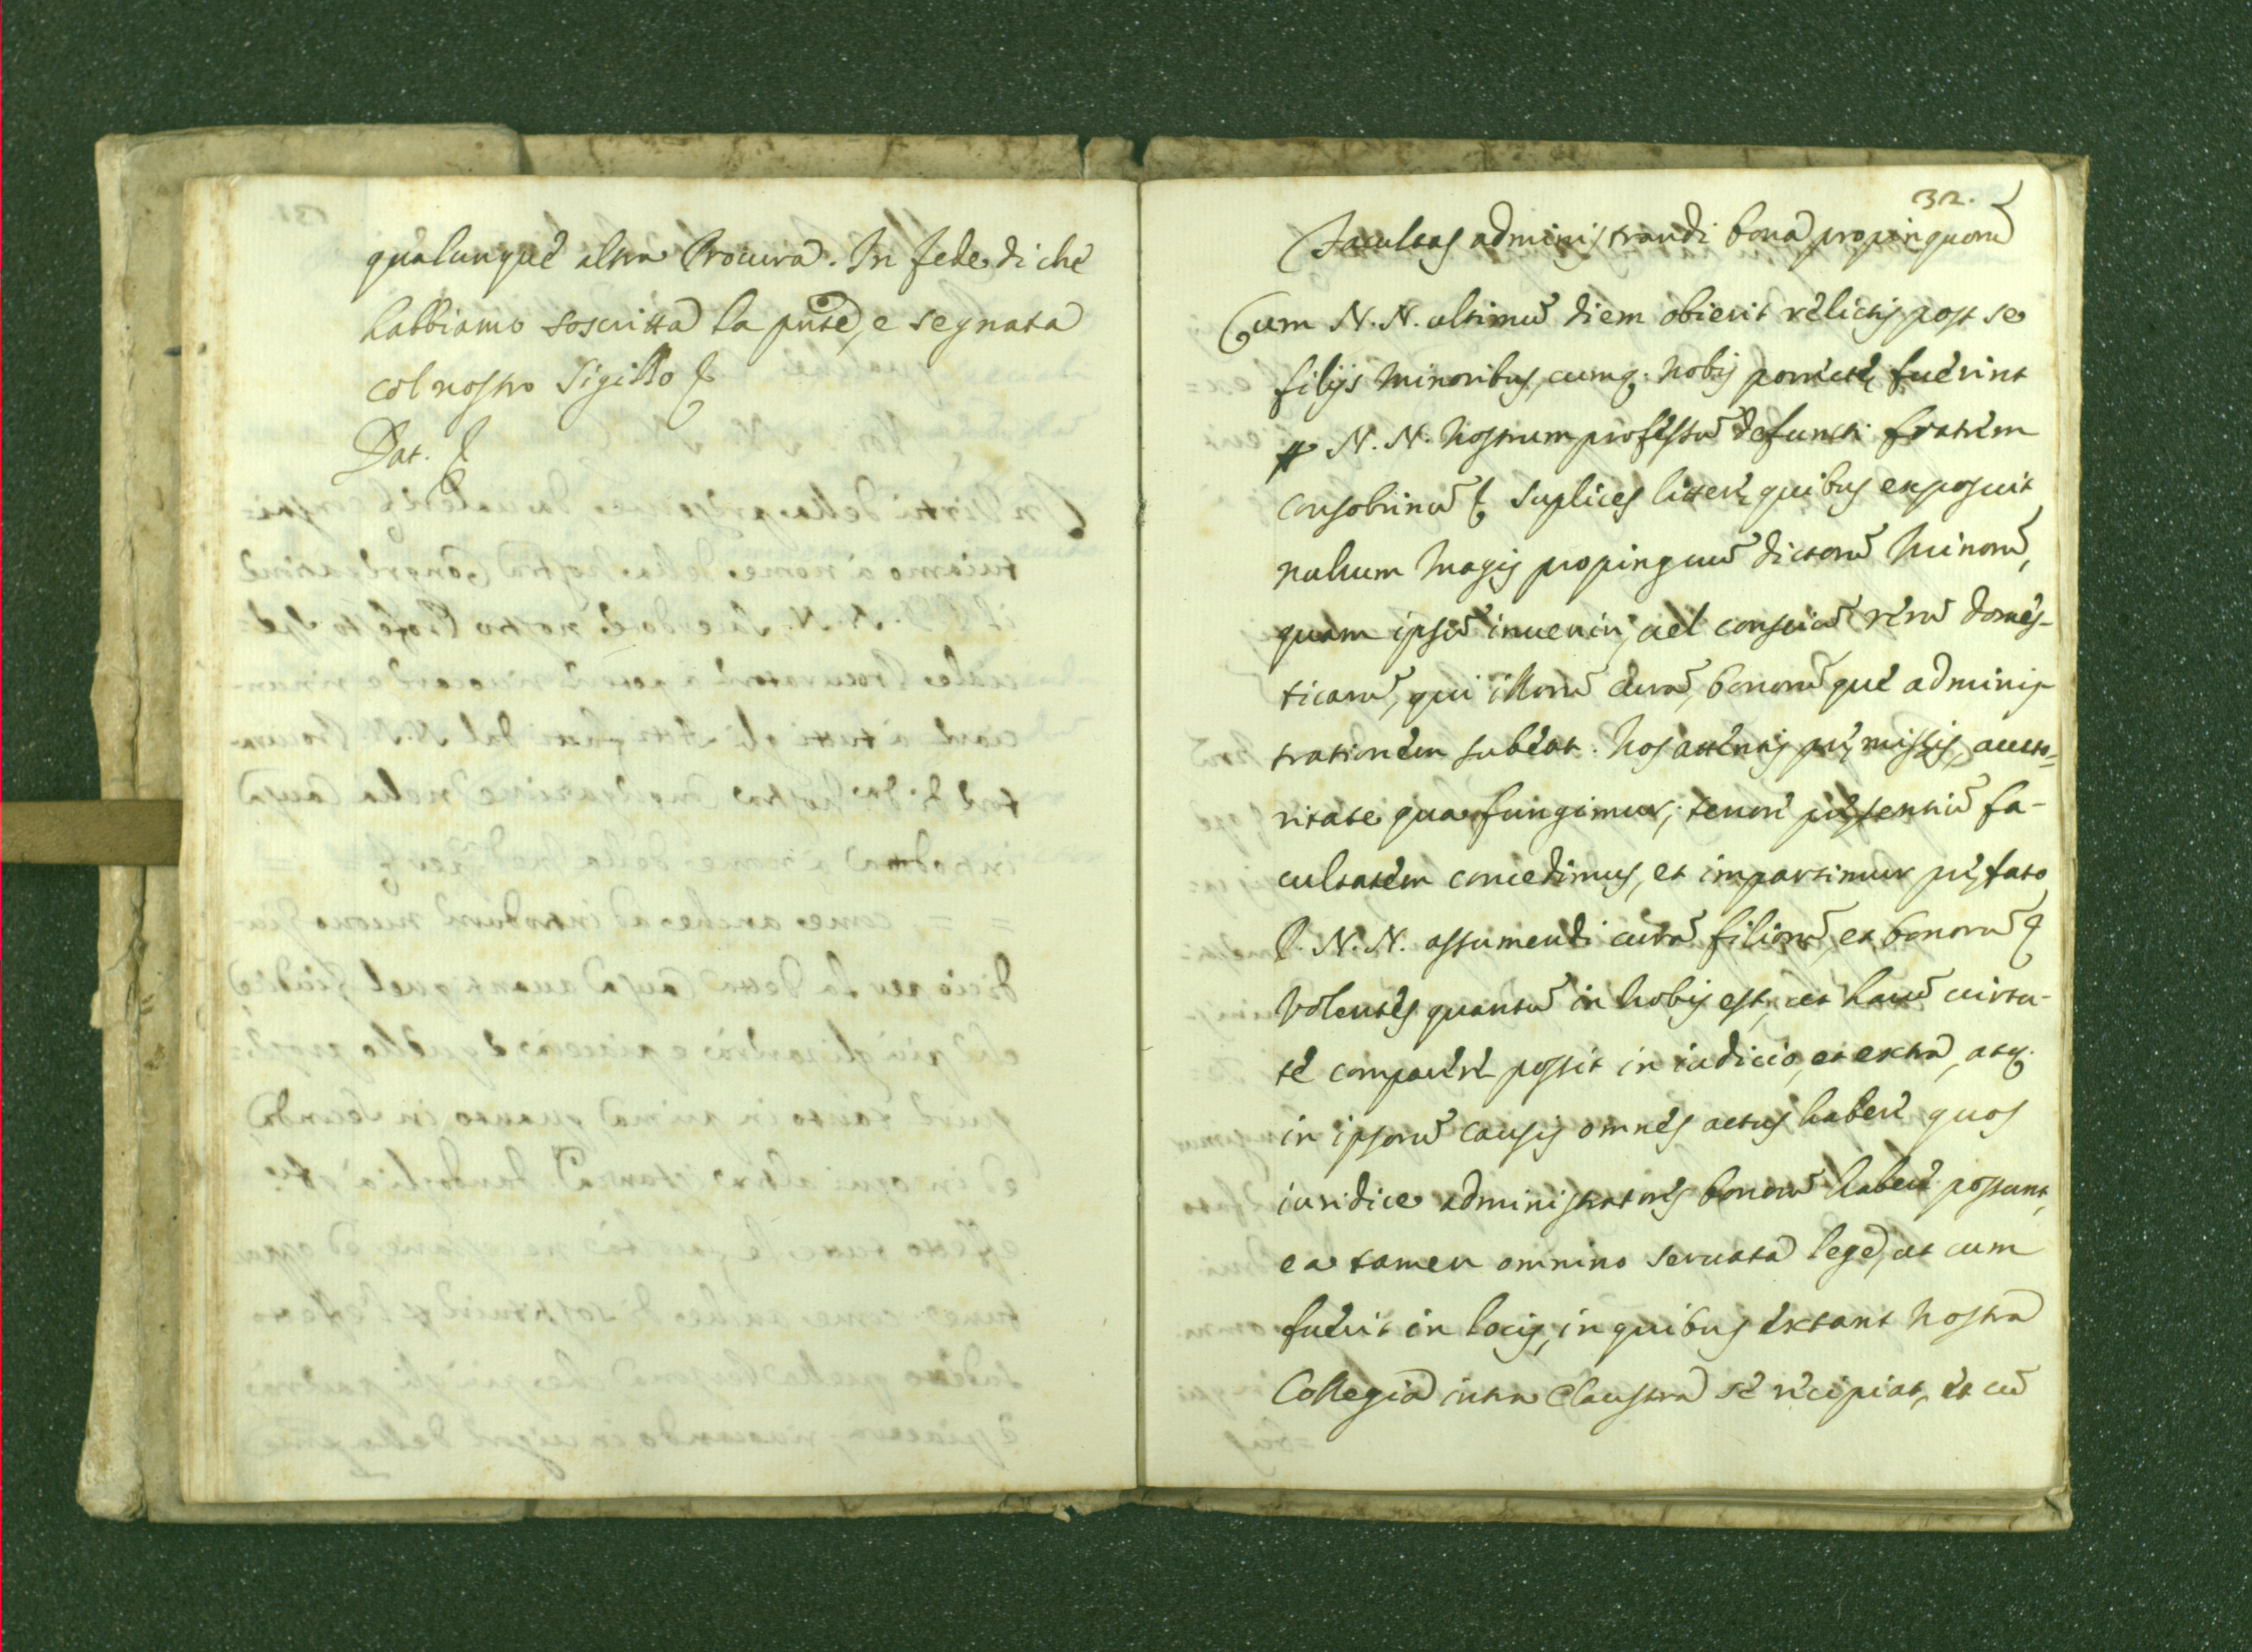 qualunque altra Procura. In fede di che
habbiamo soscritta la pñte, e segnata
col nostro Sigillo &
Dat. &
32.
Facultas administrandi bona propinquorũ
Cum N. N. ultimũ diem obierit relictis post se
filijs minoribus, cumq; nobis porrectę fuerint
N. N. nostrum professũ defuncti fratrem
consobrinũ & suplices litterę quibus exposuit
nullum magis propinquũ dictorũ minorũ,
quam ipsũ inueniri, uel consciũ rerũ domes-
ticarũ, qui illorũ curã, bonorũque adminis-
trationem subeat. Nos attentis pręmissis, aucto=
ritate qua fungimur, tenore pręsentiũ fa-
cultatem concedimus, et impartimur pręfato
P. N. N. assumendi curã filiorũ, et bonorũ &
Volentes quantũ in nobis est, ut harũ uirtu-
te comparere possit in iudicio, et extra, atq;
in ipsorũ causis omnes actus habere quos
iuridice administratores bonorũ habere possunt,
ea tamen omnino seruata lege, ut cum
fuerit in locis, in quibus extant nostra
Collegia intra Claustra se recipiat, et cũ